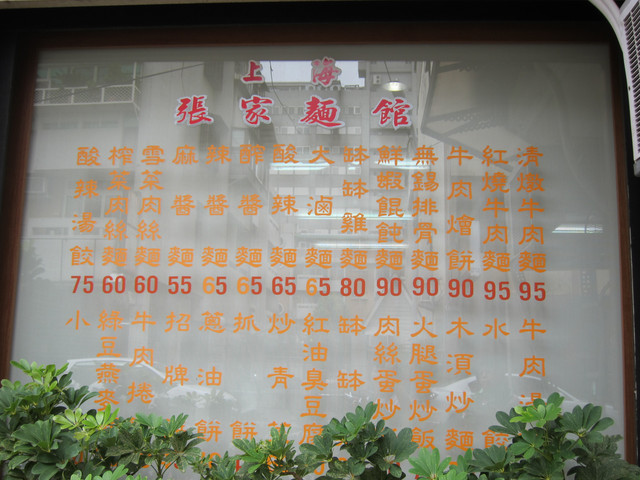 上海
張家麵館
清燉牛肉麵 95
紅燒牛肉麵 95
牛肉燴餅 90
無錫排骨麵 90
鮮蝦餛飩麵 90
缽缽雞麵 80
大滷麵 65
酸辣麵 65
酢醬麵 65
辣醬麵 65
麻醬麵 55
雪菜肉絲麵 60
榨菜肉絲麵 60
酸辣湯餃 75
牛肉湯
水餃
木湏炒麵
火腿蛋炒飯
肉絲蛋炒
缽缽
紅油臭豆腐
炒青
抓餅
蔥油餅
招牌
牛肉捲
綠豆燕麥
小